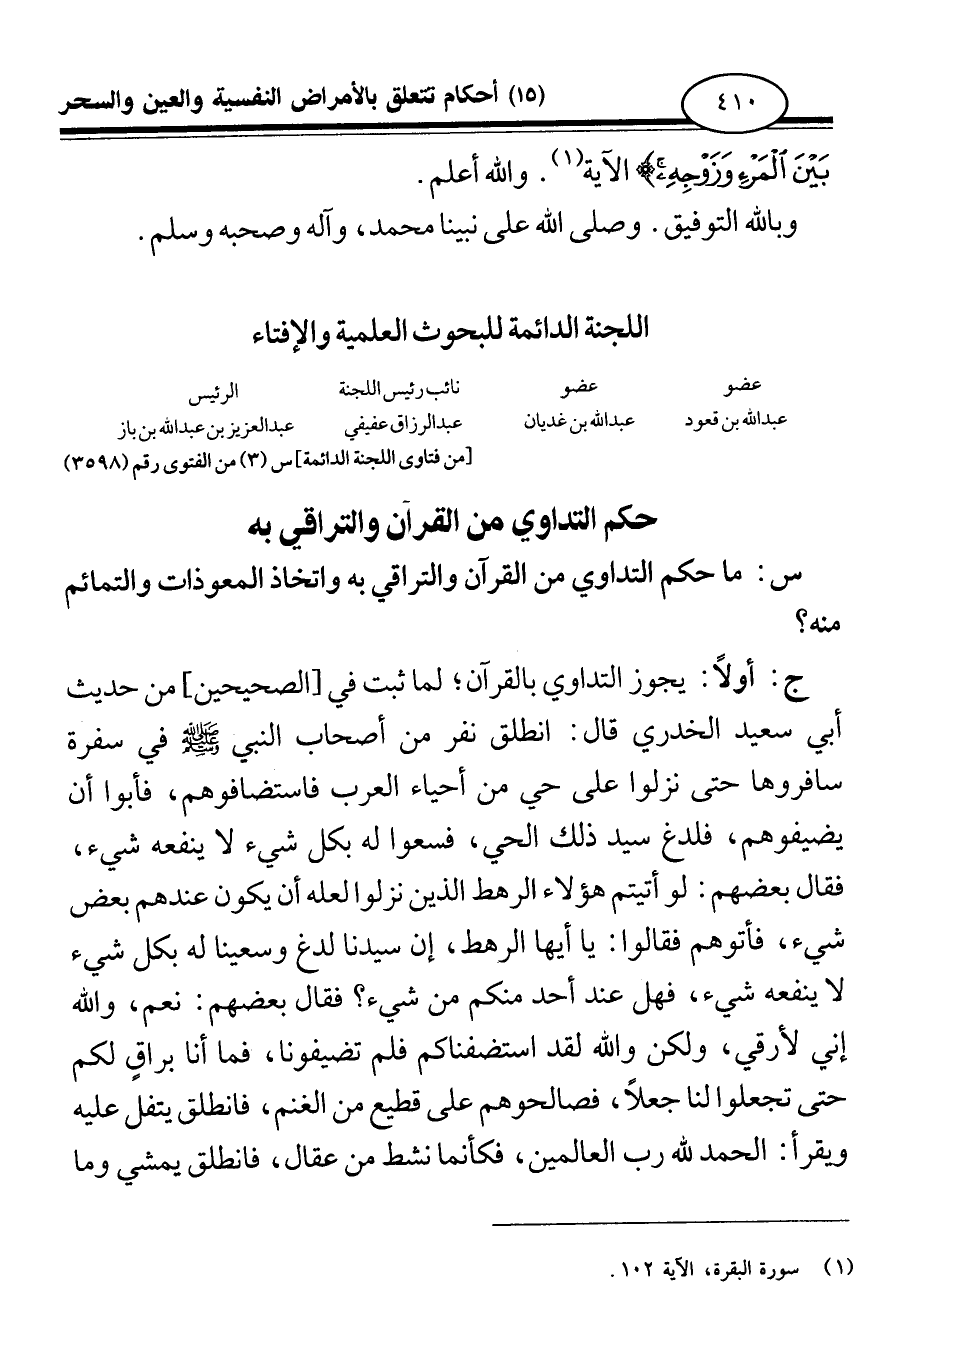 ٤١٠
(١٥) أحكام تتعلق بالأمراض النفسية والعين والسحر
بَيْنَ ٱلْمَرْءِ وَزَوْجِهِۦۚ﴾ الآية(١). والله أعلم.
وبالله التوفيق. وصلى الله على نبينا محمد، وآله وصحبه وسلم.
اللجنة الدائمة للبحوث العلمية والإفتاء
عضو عضو نائب رئيس اللجنة الرئيس
عبدالله بن قعود عبدالله بن غديان عبدالرزاق عفيفي عبدالعزيز بن عبدالله بن باز
[من فتاوى اللجنة الدائمة] س (٣) من الفتوى رقم (٣٥٩٨)
حكم التداوي من القرآن والتراقي به
س: ما حكم التداوي من القرآن والتراقي به واتخاذ المعوذات والتمائم
منه؟
ج: أولاً: يجوز التداوي بالقرآن؛ لما ثبت في [الصحيحين] من حديث
أبي سعيد الخدري قال: انطلق نفر من أصحاب النبي ﷺ في سفرة
سافروها حتى نزلوا على حي من أحياء العرب فاستضافوهم، فأبوا أن
يضيفوهم، فلدغ سيد ذلك الحي، فسعوا له بكل شيء لا ينفعه شيء،
فقال بعضهم: لو أتيتم هؤلاء الرهط الذين نزلوا لعله أن يكون عندهم بعض
شيء، فأتوهم فقالوا: يا أيها الرهط، إن سيدنا لدغ وسعينا له بكل شيء
لا ينفعه شيء، فهل عند أحد منكم من شيء؟ فقال بعضهم: نعم، والله
إني لأرقي، ولكن والله لقد استضفناكم فلم تضيفونا، فما أنا براقٍ لكم
حتى تجعلوا لنا جعلاً، فصالحوهم على قطيع من الغنم، فانطلق يتفل عليه
ويقرأ: الحمد لله رب العالمين، فكأنما نشط من عقال، فانطلق يمشي وما
(١) سورة البقرة، الآية ١٠٢.